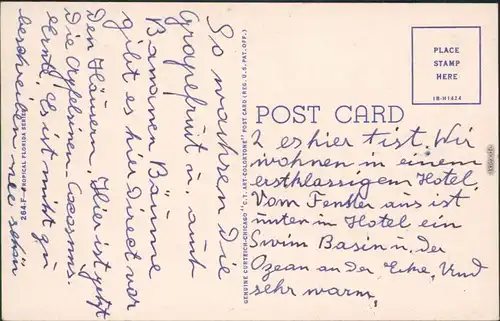 So wachsen die
Grapefruit u. auch
Bananen Bäume
gibt es hier direct vor
den Häusern. Hier ist jetzt
die Apfelsinen - Cocosnuss.
ernte. Es ist nicht zu
beschreiben wie schön
264-F—TROPICAL FLORIDA SERIES
GENUINE CURTEICH-CHICAGO "C.T. ART-COLORTONE" POST CARD (REG. U.S. PAT. OFF.)
PLACE
STAMP
HERE
1B-H1624
POST CARD
2 es hier ist. Wir
wohnen in einem
erstklassigem Hotel.
Vom Fenster aus ist
unten im Hotel ein
Swim Basin u. der
Ozean an der Ecke. Und
sehr warm.